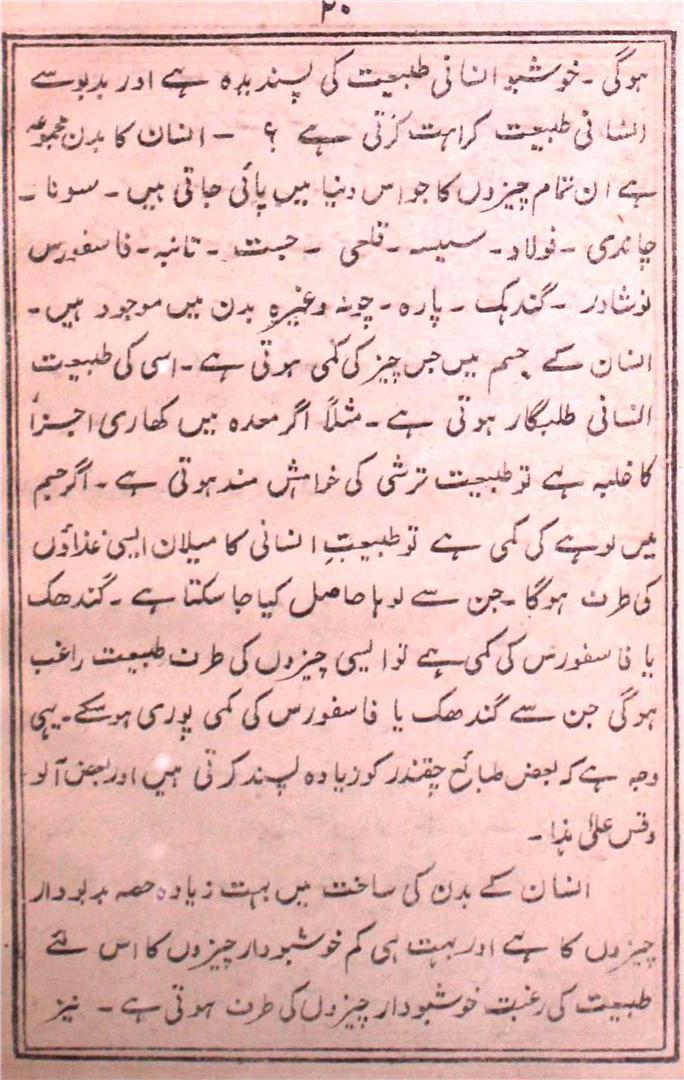 ۲۰
ہوگی ۔ خوشبو انسانی طبیعت کی پسندیدہ ہے اور بدبو سے
انسانی طبیعت کراہت کرتی ہے ؟ - انسان کا بدن مجموعہ
ہے ان تمام چیزوں کا جو اس دنیا میں پائی جاتی ہیں ۔ سونا ۔
چاندی ۔ فولاد ۔ سیسہ ۔ قلعی ۔ جست ۔ تانبہ ۔ فاسفورس
نوشادر ۔ گندہک ۔ پارہ ۔ چونہ وغیرہ بدن میں موجود ہیں ۔
انسان کے جسم میں جس چیز کی کمی ہوتی ہے ۔ اسی کی طبیعت
انسانی طلبگار ہوتی ہے ۔ مثلاً اگر معدہ میں کھاری اجزأ
کا غلبہ ہے تو طبیعت ترشی کی خواہش مند ہوتی ہے ۔ اگر جسم
میں لوہے کی کمی ہے تو طبیعتِ انسانی کا میلان ایسی غذاؤں
کی طرف ہوگا ۔ جن سے لوہا حاصل کیا جا سکتا ہے ۔ گندھک
یا فاسفورس کی کمی ہے تو ایسی چیزوں کی طرف طبیعت راغب
ہوگی جن سے گندھک یا فاسفورس کی کمی پوری ہو سکے ۔ یہی
وجہ ہے کہ بعض طبائع چقندر کو زیادہ پسند کرتی ہیں اور بعض آلو ۔
وقس علیٰ ہذا ۔
انسان کے بدن کی ساخت میں بہت زیادہ حصہ بدبودار
چیزوں کا ہے اور بہت ہی کم خوشبودار چیزوں کا اس لئے
طبیعت کی رغبت خوشبودار چیزوں کی طرف ہوتی ہے ۔ نیز